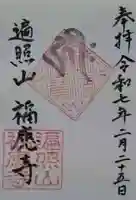 奉拝 令和七年二月二十五日
遍照山 福應寺